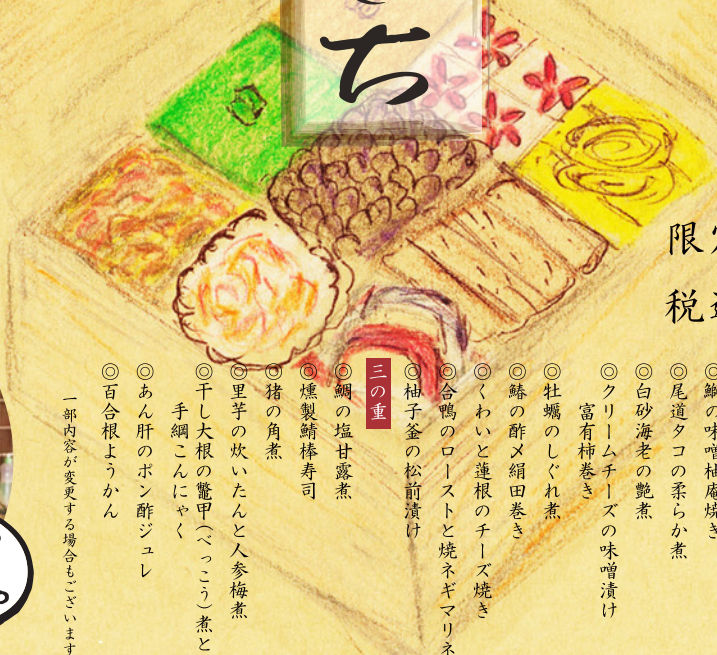 ち
限
税
の味噌柚庵焼き
◎尾道タコの柔らか煮
◎白砂海老の艶煮
◎クリームチーズの味噌漬け
富有柿巻き
◎牡蠣のしぐれ煮
◎鰆の酢〆絹田巻き
◎くわいと蓮根のチーズ焼き
◎合鴨のローストと焼ネギマリネ
◎柚子釜の松前漬け
三の重
◎鯛の塩甘露煮
◎燻製鯖棒寿司
◎猪の角煮
◎里芋の炊いたんと人参梅煮
◎干し大根の鼈甲(べっこう)煮と
手綱こんにゃく
◎あん肝のポン酢ジュレ
◎百合根ようかん
一部内容が変更する場合もございます